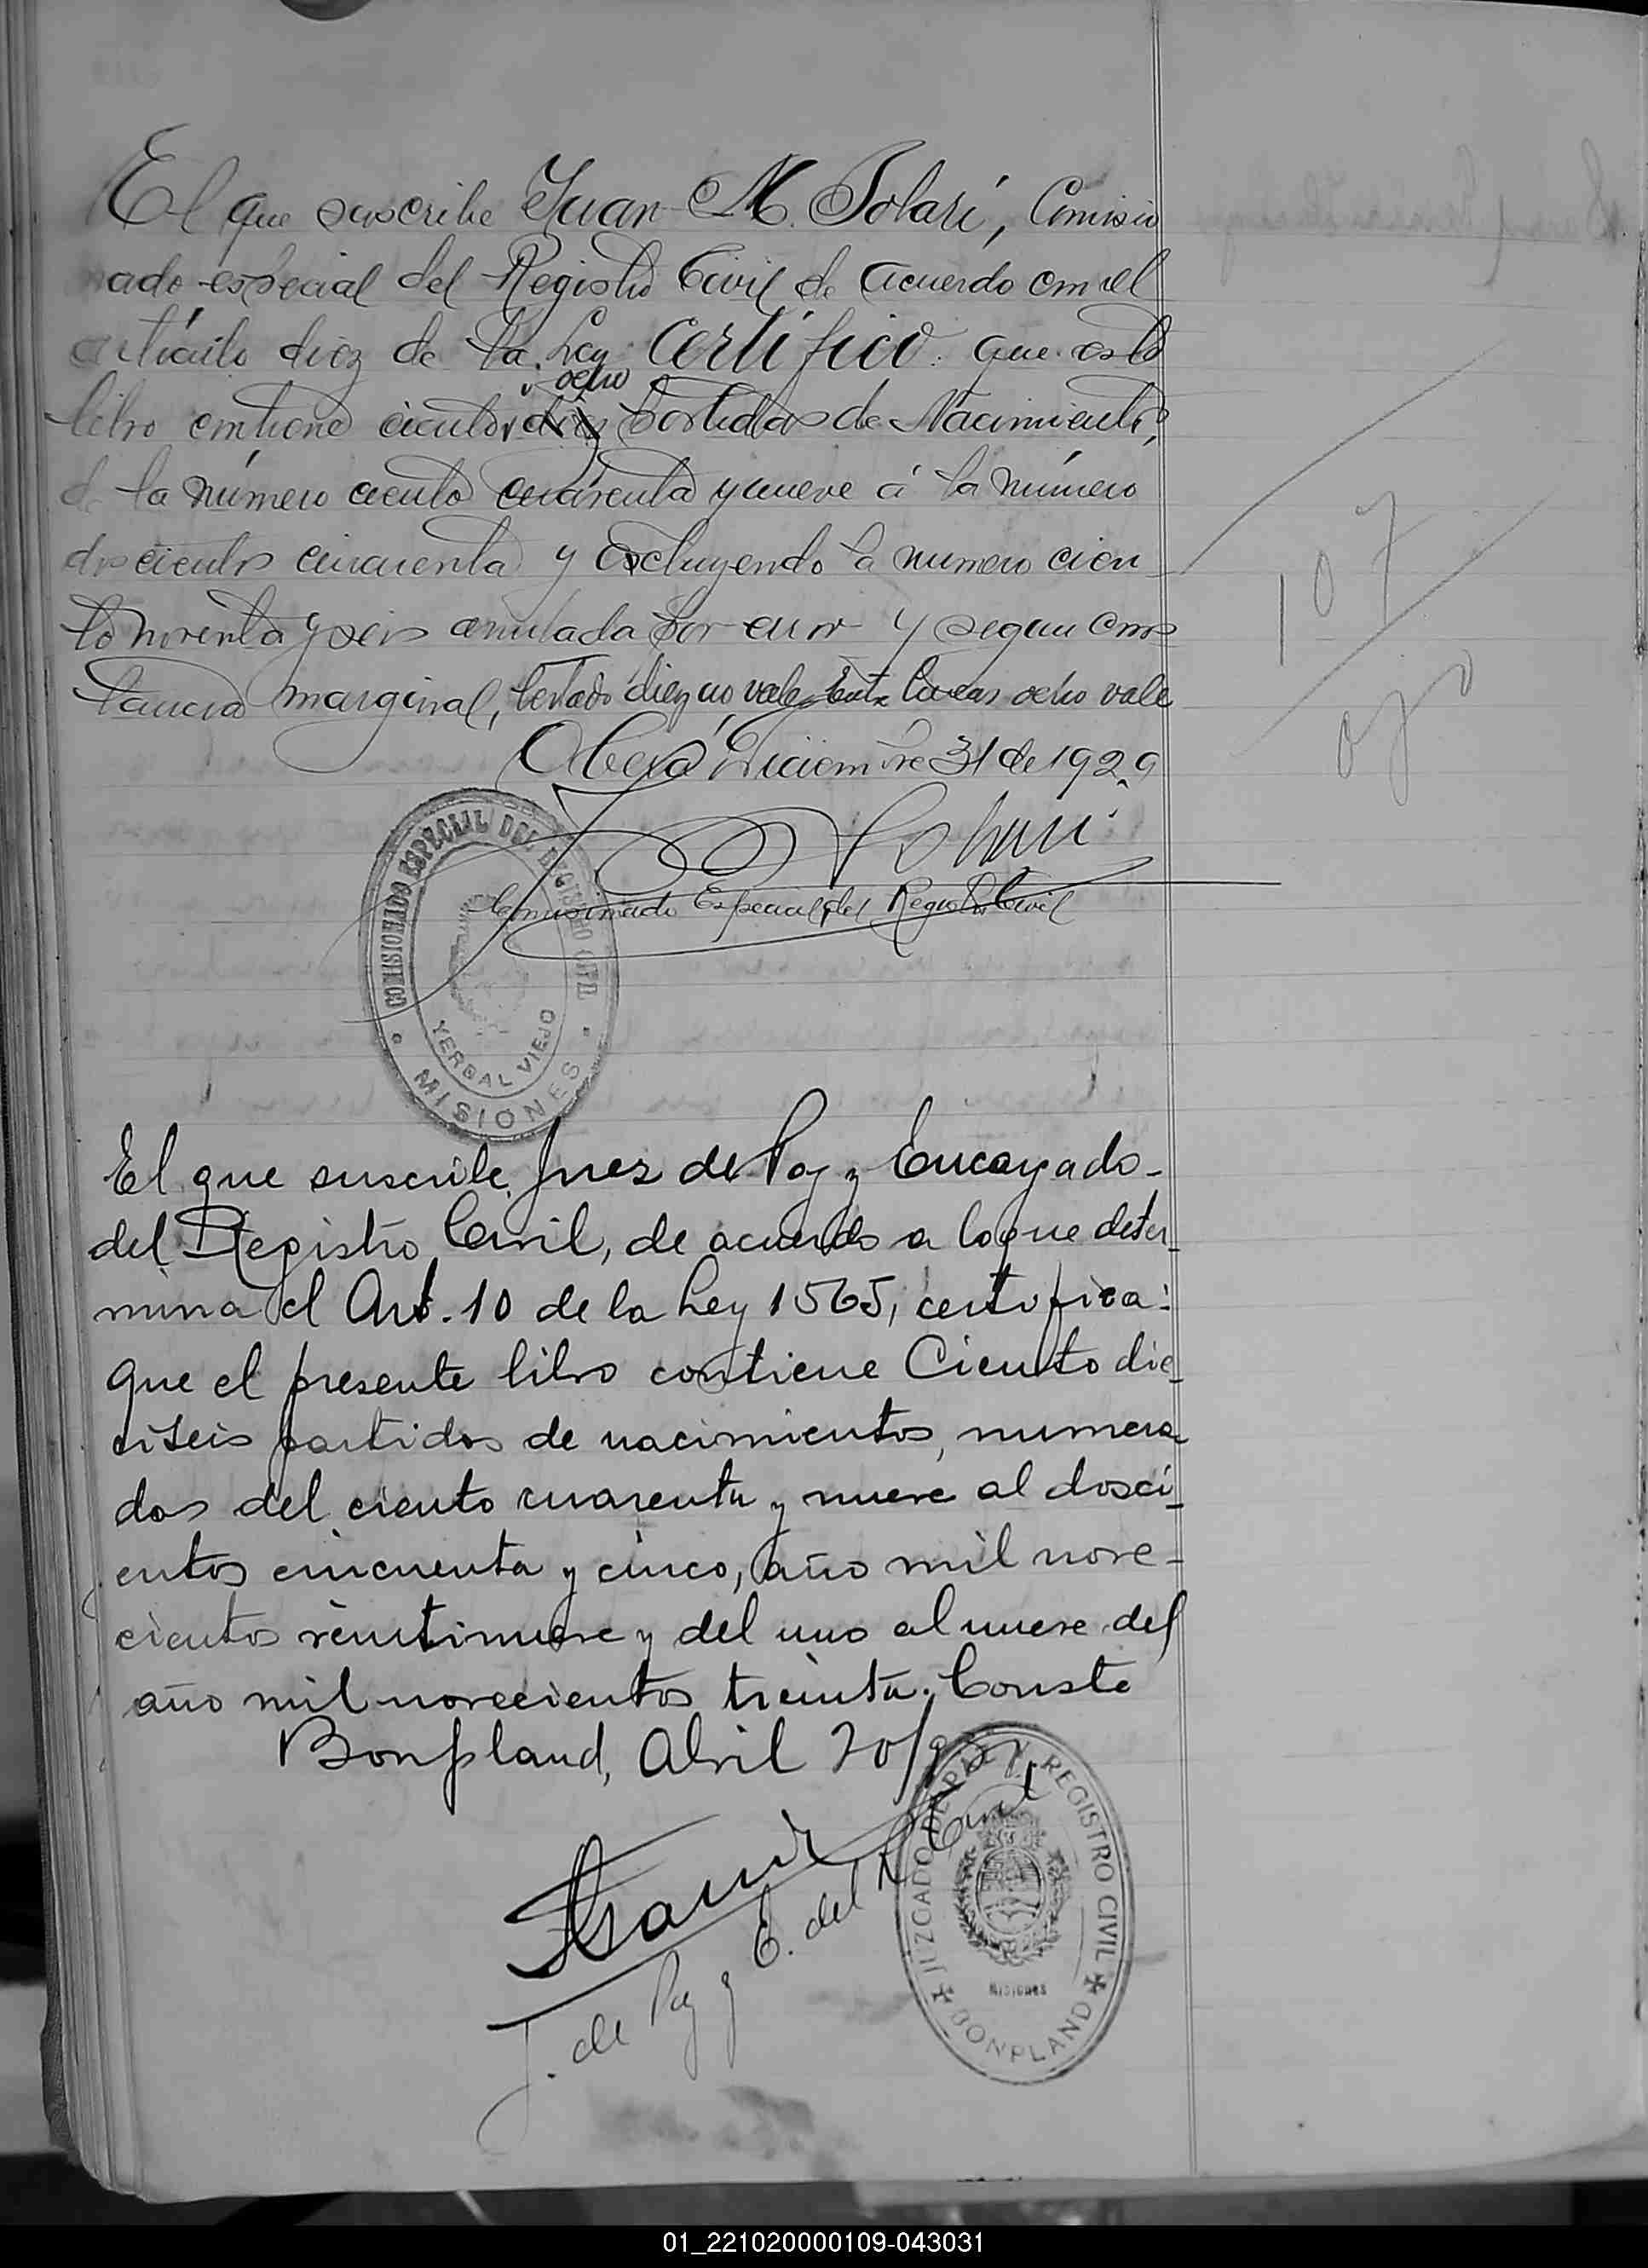 El que suscribe Juan M. Solari, Comisio
nado especial del Registro Civil de acuerdo con el
artículo diez de la Ley Certifico: que este
ocho
libro contiene ciento diez partidas de Nacimiento,
de la número ciento cuarenta y nueve á la número
doscientos cincuenta y excluyendo la numero cien
to noventa y seis anulada por error y segun cons
tancia marginal, testado diez no vale, Entre lineas ocho vale
Oberá Diciembre 31 de 1929
Solari
Comisionado Especial del Registro Civil
COMISIONADO ESPECIAL DEL REGISTRO CIVIL
YERBAL VIEJO
MISIONES
107
ojo
El que suscribe, Juez de Paz y Encargado
del Registro Civil, de acuerdo a lo que deter_
mina el Art. 10 de la Ley 1565, certifica:
que el presente libro contiene Ciento die_
ciseis partidas de nacimientos, numera
dos del ciento cuarenta y nueve al dosci_
entos cincuenta y cinco, año mil nove-
cientos veintinueve y del uno al nueve del
año mil novecientos treinta. Conste
Bonpland, Abril 20/9
J. de Paz y E. del R. Civil
JUZGADO DE PAZ Y REGISTRO CIVIL
MISIONES
BONPLAND
01_221020000109-043031